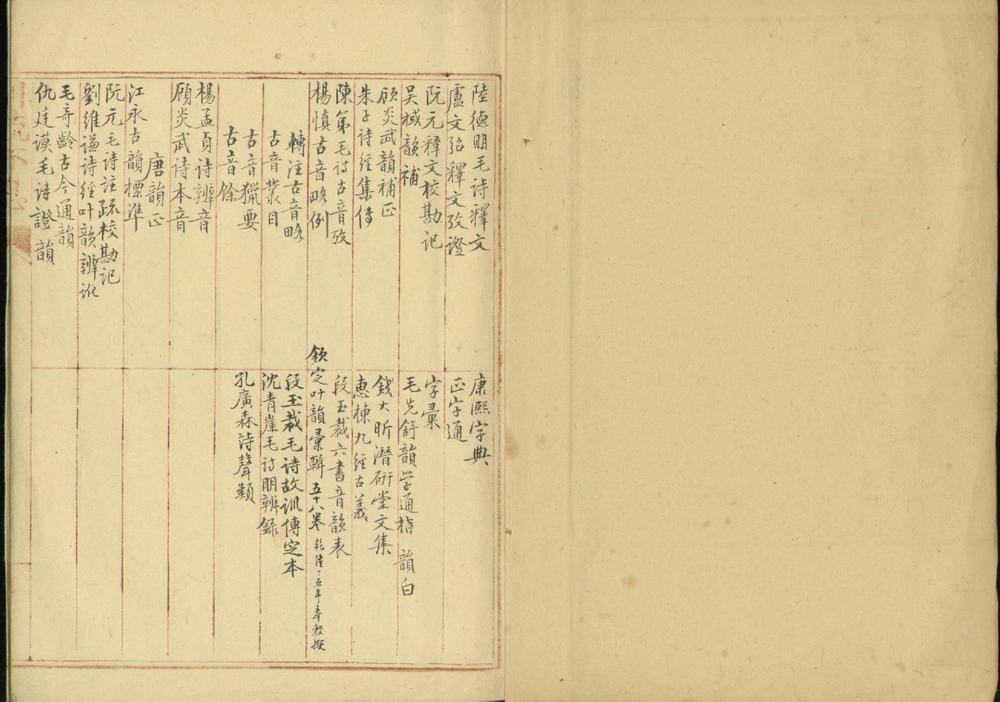 陸德明毛詩釋文
盧文弨釋文攷證
阮元釋文校勘记
吴棫韻補
顾炎武韻補正
朱子诗經集传
陳第毛诗古音攷
楊慎古音畧例
轉注古音畧
古音叢目
古音獵要
古音餘
楊孟貞诗辨音
顾炎武诗本音
唐韻正
江永古韻標準
阮元毛诗注疏校勘记
劉維谦诗經叶韵辨讹
毛奇齡古今通韻
仇廷謨毛诗證韻
康熙字典
正字通
字彙
毛先舒韻学通指 韻白
錢大昕潛研堂文集
惠棟九經古義
段玉裁六書音韻表
欽定叶韻彙輯 五十八卷 乾隆十五年奉敕撰
段玉裁毛诗故訓傳定本
沈青崖毛诗明辨錄
孔廣森诗聲類